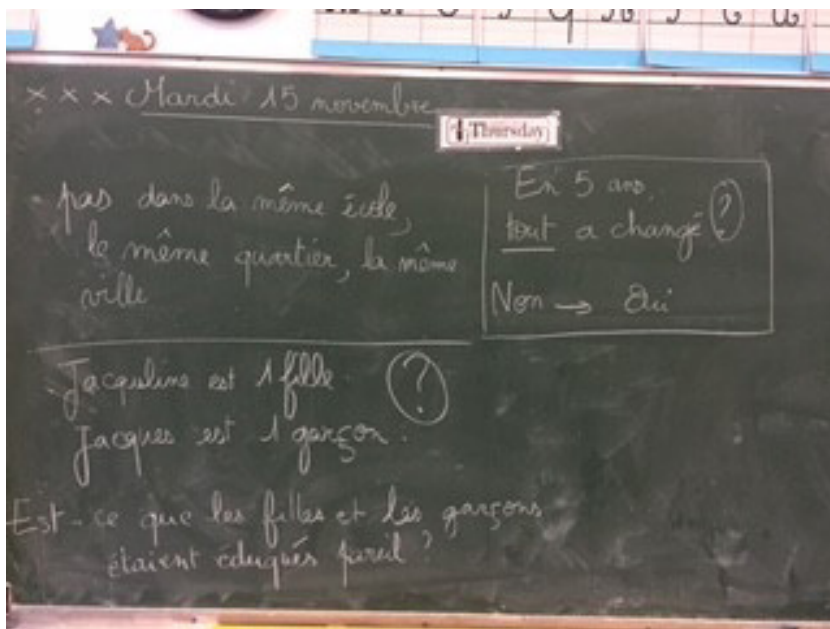 x x x Mardi 15 novembre
Thursday
- pas dans la même école,
le même quartier, la même
ville
En 5 ans,
tout a changé ?
Non → Oui
Jacqueline est 1 fille
?
Jacques est 1 garçon.
Est-ce que les filles et les garçons
étaient éduqués pareil ?